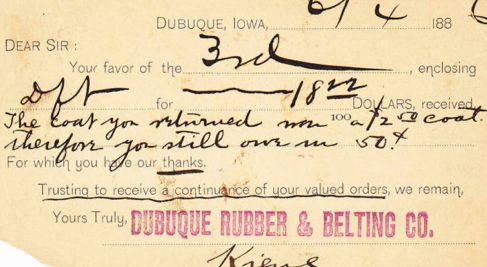 DUBUQUE, IOWA, 6/4 188
DEAR SIR:
Your favor of the 3rd, enclosing
Dft for 18 22 DOLLARS, received
The coat you returned was 100 a $2 50 coat.
therefore you still owe us 50.¢
For which you have our thanks.
Trusting to receive a continuance of your valued orders, we remain,
Yours Truly, DUBUQUE RUBBER & BELTING CO.